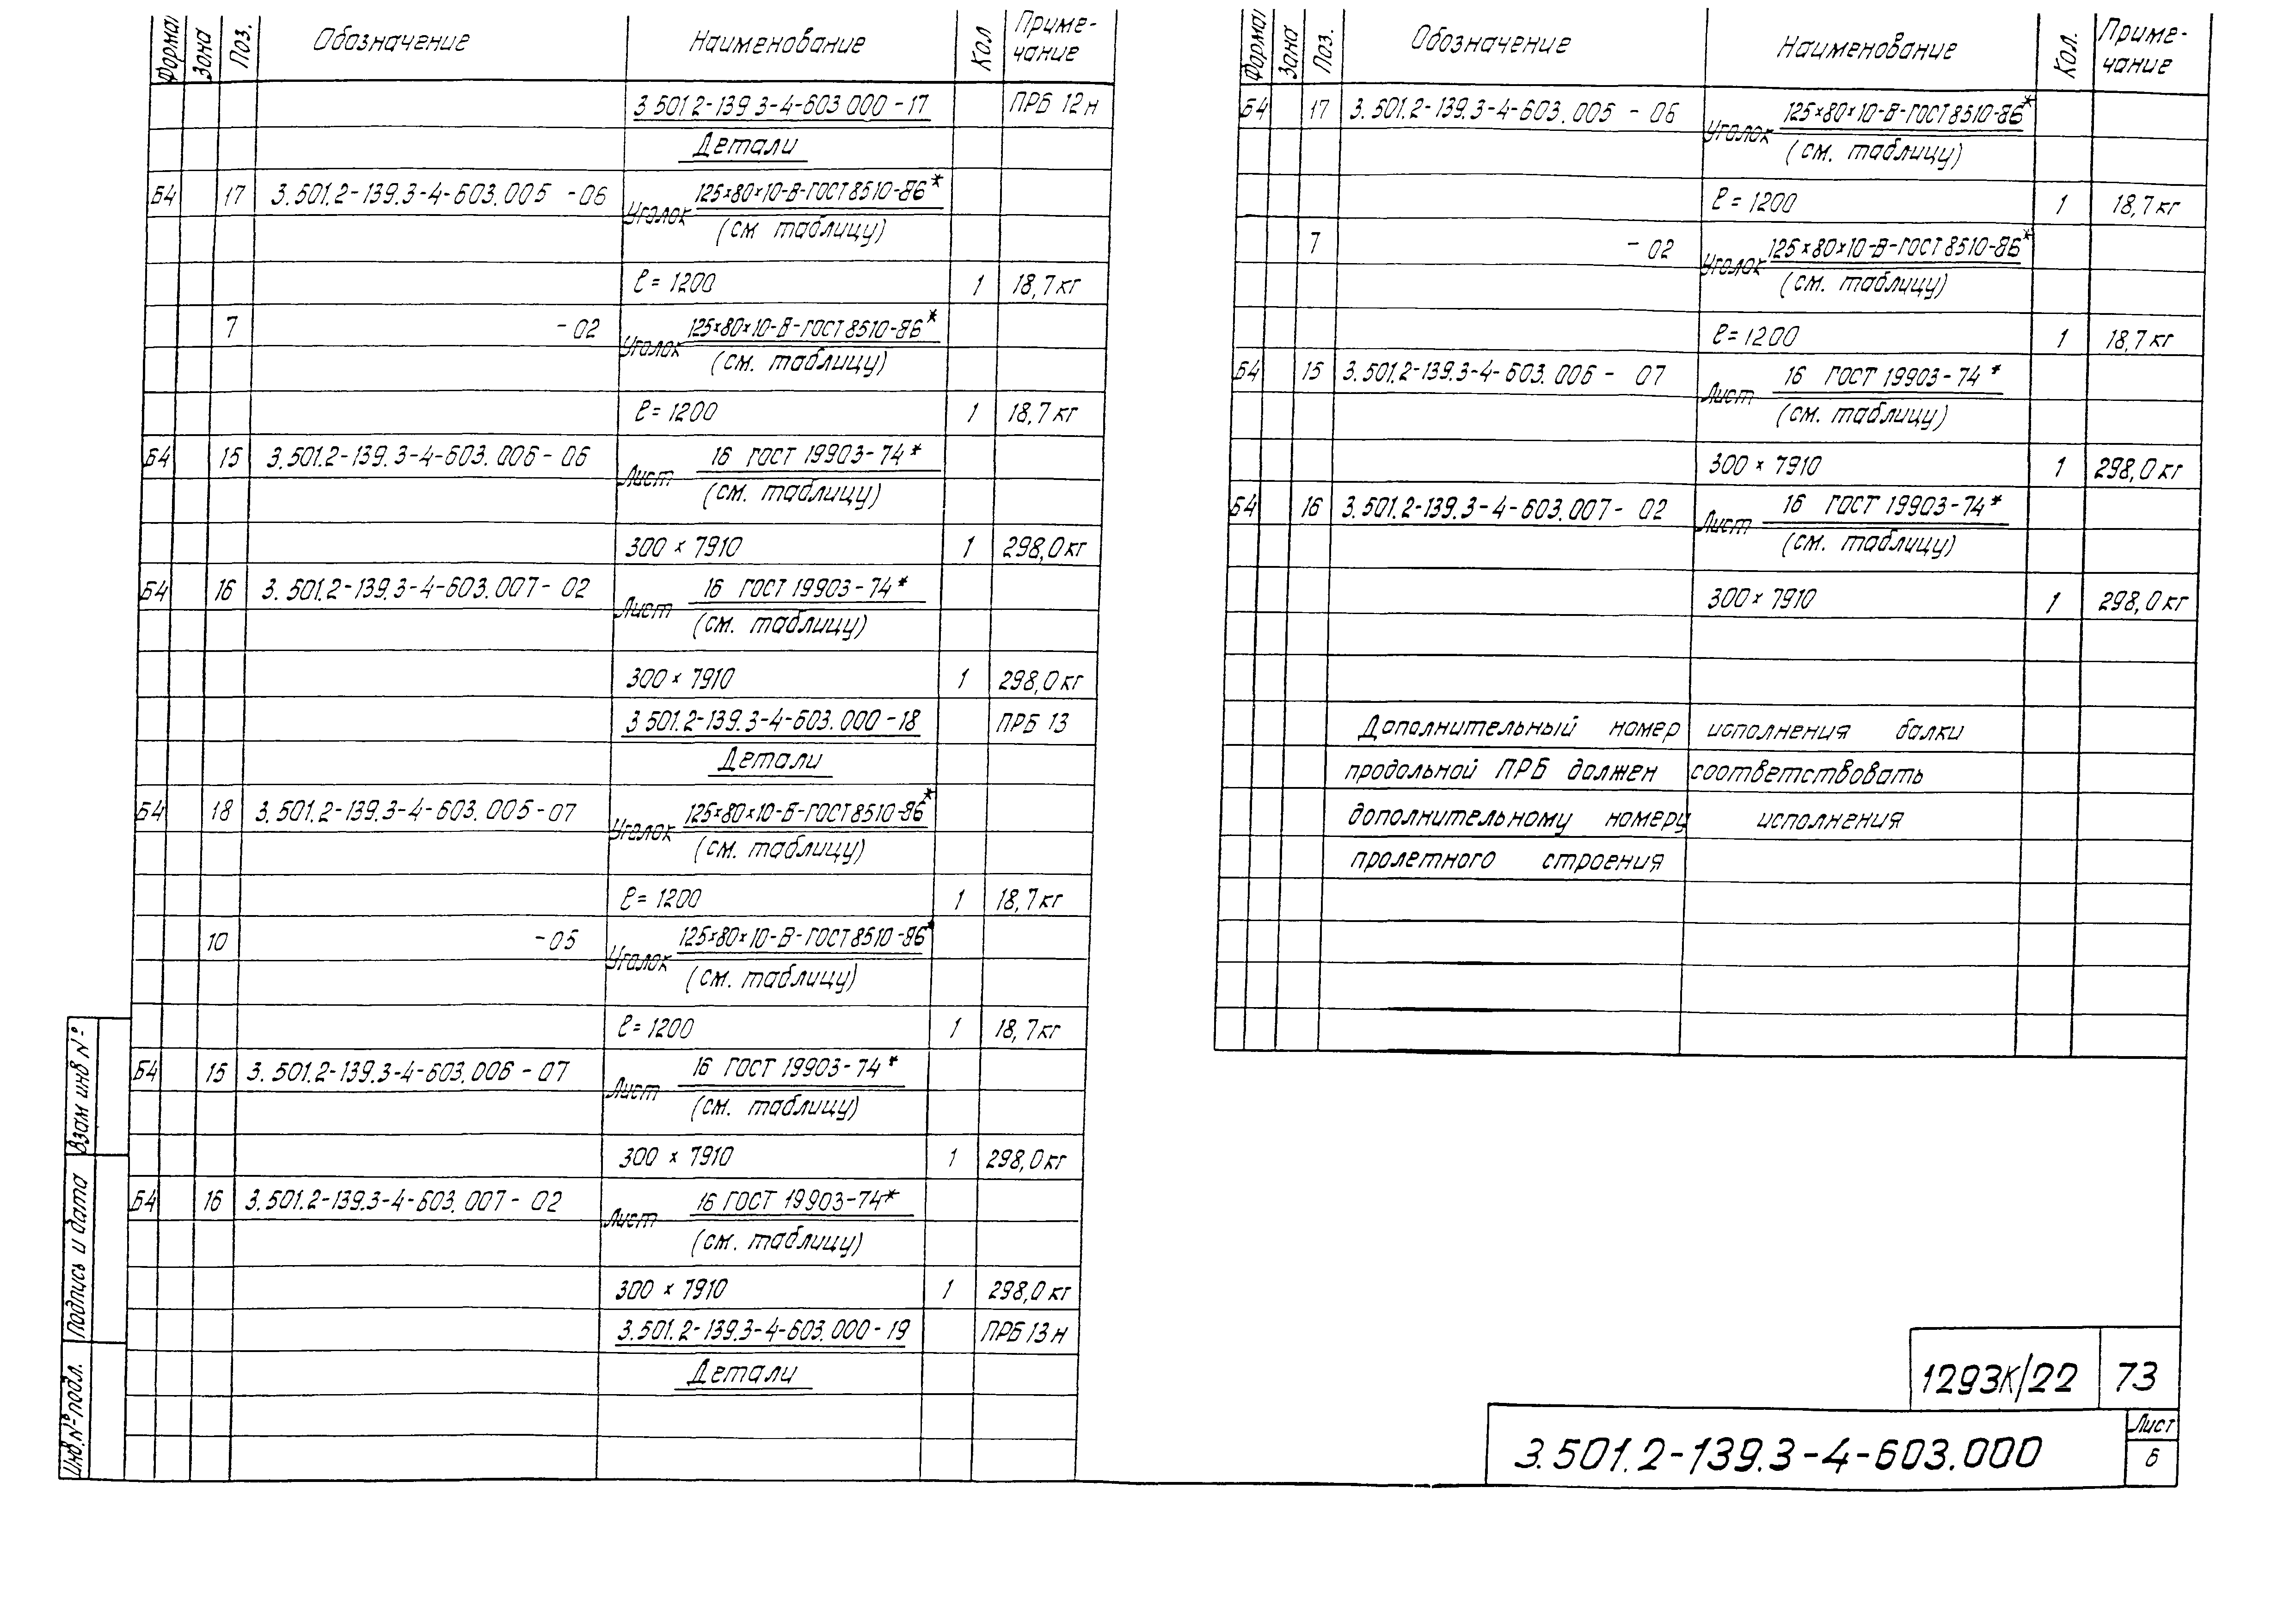 Форма Зона Поз. Обозначение Наименование Кол Приме-
чание
3.501.2-139.3-4-603.000-17 ПРБ 12н
Детали
Б4 17 3.501.2-139.3-4-603.005 -06 Уголок 125×80×10-В-ГОСТ 8510-86*
(см таблицу)
ℓ = 1200 1 18,7 кг
7 -02 Уголок 125×80×10-В-ГОСТ 8510-86*
(см. таблицу)
ℓ = 1200 1 18,7 кг
Б4 15 3.501.2-139.3-4-603.006-06 Лист 16 ГОСТ 19903-74*
(см. таблицу)
300 × 7910 1 298,0 кг
Б4 16 3.501.2-139.3-4-603.007-02 Лист 16 ГОСТ 19903-74*
(см. таблицу)
300 × 7910 1 298,0 кг
3.501.2-139.3-4-603.000-18 ПРБ 13
Детали
Б4 18 3.501.2-139.3-4-603.005-07 Уголок 125×80×10-В-ГОСТ 8510-86*
(см. таблицу)
ℓ = 1200 1 18,7 кг
10 -05 Уголок 125×80×10-В-ГОСТ 8510-86*
(см. таблицу)
ℓ = 1200 1 18,7 кг
Б4 15 3.501.2-139.3-4-603.006-07 Лист 16 ГОСТ 19903-74*
(см. таблицу)
300 × 7910 1 298,0 кг
Б4 16 3.501.2-139.3-4-603.007-02 Лист 16 ГОСТ 19903-74*
(см. таблицу)
300 × 7910 1 298,0 кг
3.501.2-139.3-4-603.000-19 ПРБ 13н
Детали
Взам инв №
Подпись и дата
Инв. № подл.
Форма Зона Поз. Обозначение Наименование Кол. Приме-
чание
Б4 17 3.501.2-139.3-4-603.005 -06 Уголок 125×80×10-В-ГОСТ 8510-86*
(см. таблицу)
ℓ = 1200 1 18,7 кг
7 -02 Уголок 125×80×10-В-ГОСТ 8510-86*
(см. таблицу)
ℓ = 1200 1 18,7 кг
Б4 15 3.501.2-139.3-4-603.006-07 Лист 16 ГОСТ 19903-74*
(см. таблицу)
300 × 7910 1 298,0 кг
Б4 16 3.501.2-139.3-4-603.007-02 Лист 16 ГОСТ 19903-74*
(см. таблицу)
300 × 7910 1 298,0 кг
Дополнительный номер исполнения балки
продольной ПРБ должен соответствовать
дополнительному номеру исполнения
пролетного строения
1293К/22 73
3.501.2-139.3-4-603.000 Лист
6